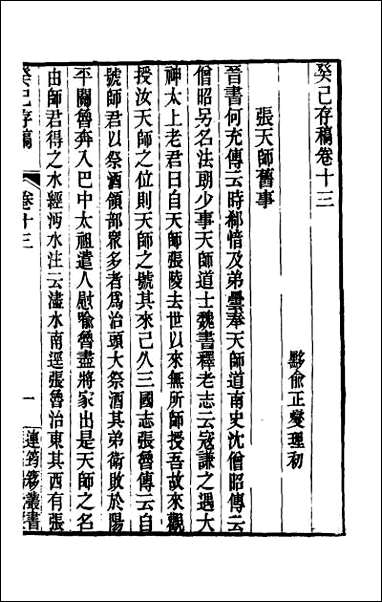 癸巳存稿卷十三
黟俞正燮理初
張天師舊事
晉書何充傳云時郗愔及弟曇奉天師道南史沈僧昭傳云
僧昭另名法朗少事天師道士魏書釋老志云寇謙之遇大
神太上老君曰自天師張陵去世以來無所師授吾故來觀
授汝天師之位則天師之號其來已久三國志張魯傳云自
號師君以祭酒領部眾多者為治頭大祭酒其弟衛敗於陽
平關魯奔入巴中太祖遣人慰喻魯盡將家出是天師之名
由師君得之水經沔水注云濜水南逕張魯治東其西有張
癸巳存稿
卷十三
一
連筠簃叢書